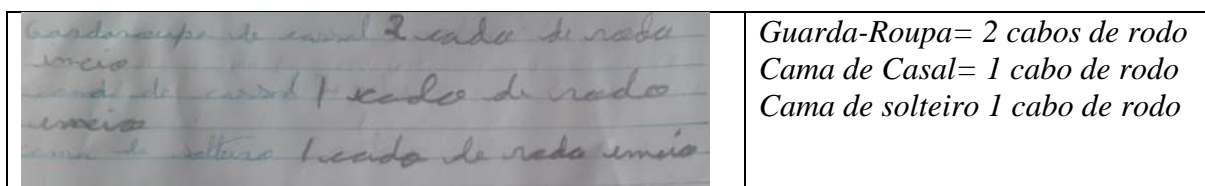 Gardaroupa de casal 2 cado de rodo
imeio
cama de cassal 1 cado de rodo
emeio
cama de solteiro 1 cado de rodo emeio
Guarda-Roupa= 2 cabos de rodo
Cama de Casal= 1 cabo de rodo
Cama de solteiro 1 cabo de rodo